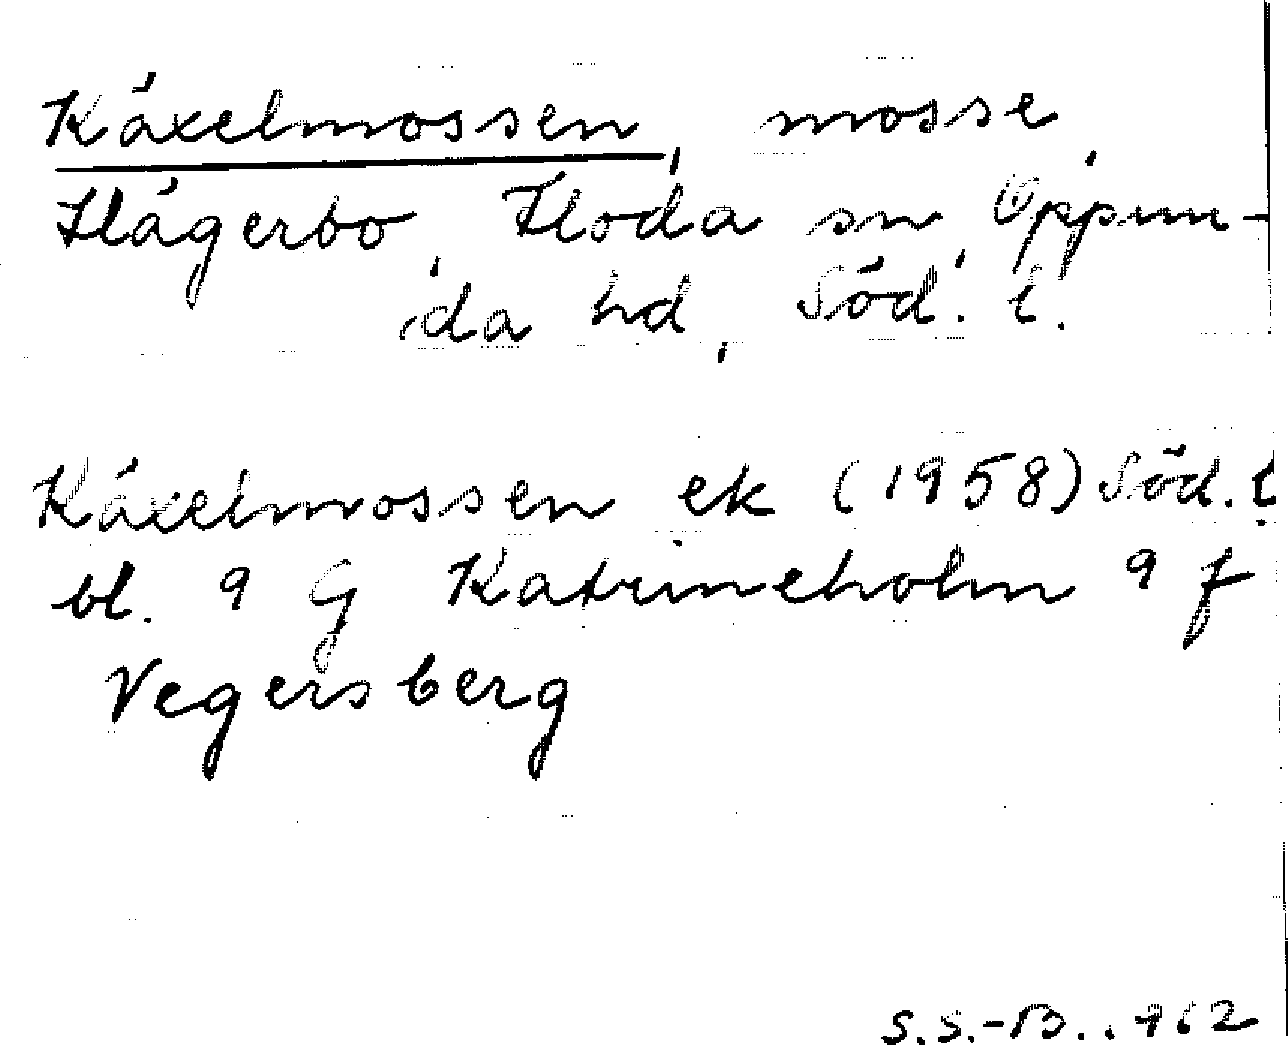 Käxelmossen, mosse,
Flägerbo, Floda sn, Oppun-
da hd, Söd. l.
Käxelmossen ek (1958) Söd. l
bl. 9 G Katrineholm 9 f
Vegersberg
S.S.-B. 1962